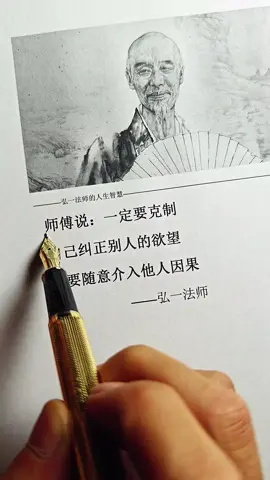 弘一法师的人生智慧
师傅说：一定要克制
己纠正别人的欲望
要随意介入他人因果
——弘一法师